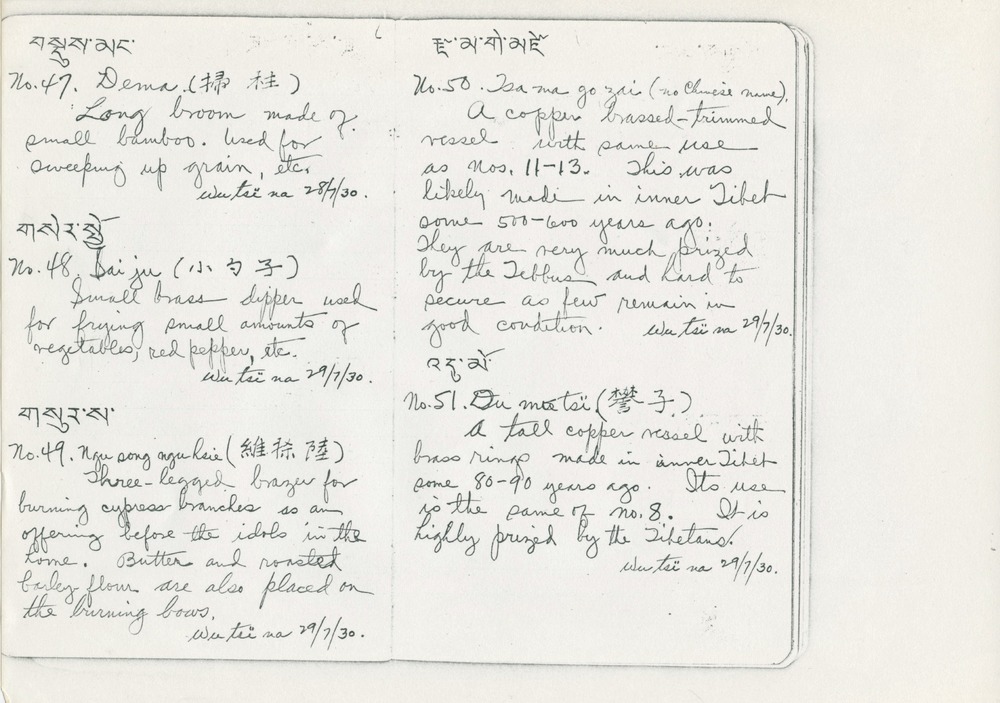 གསྡུས་མང་
No. 47. Dema. (掃 桂)
Long broom made of
small bamboo. Used for
sweeping up grain, etc.
Wu tsï na 28/7/30.
གསེར་སྐྱོ
No. 48. Sai ju (小勺子)
Small brass dipper used
for frying small amounts of
vegetables, red pepper, etc.
Wu tsï na 29/7/30.
གསུར་ས་
No. 49. Ngu song ngu hsie (維 陸)
Three-legged brazer for
burning cypress branches as an
offering before the idols in the
home. Butter and roasted
barley flour are also placed on
the burning bows.
Wu tsï na 29/7/30.
No. 50. Tsa ma go zai (no Chinese name).
A copper brassed-trimmed
vessel with same use
as nos. 11-13. This was
likely made in inner Tibet
some 500-600 years ago.
They are very much prized
by the Tebbus and hard to
secure as few remain in
good condition. Wu tsï na 29/7/30.
འདུ་མོ་
No. 51. Du tsï (子)
A tall copper vessel with
brass rings made in inner Tibet
some 80-90 years ago. Its use
is the same of no. 8. It is
highly prized by the Tibetans.
Wu tsï na 29/7/30.